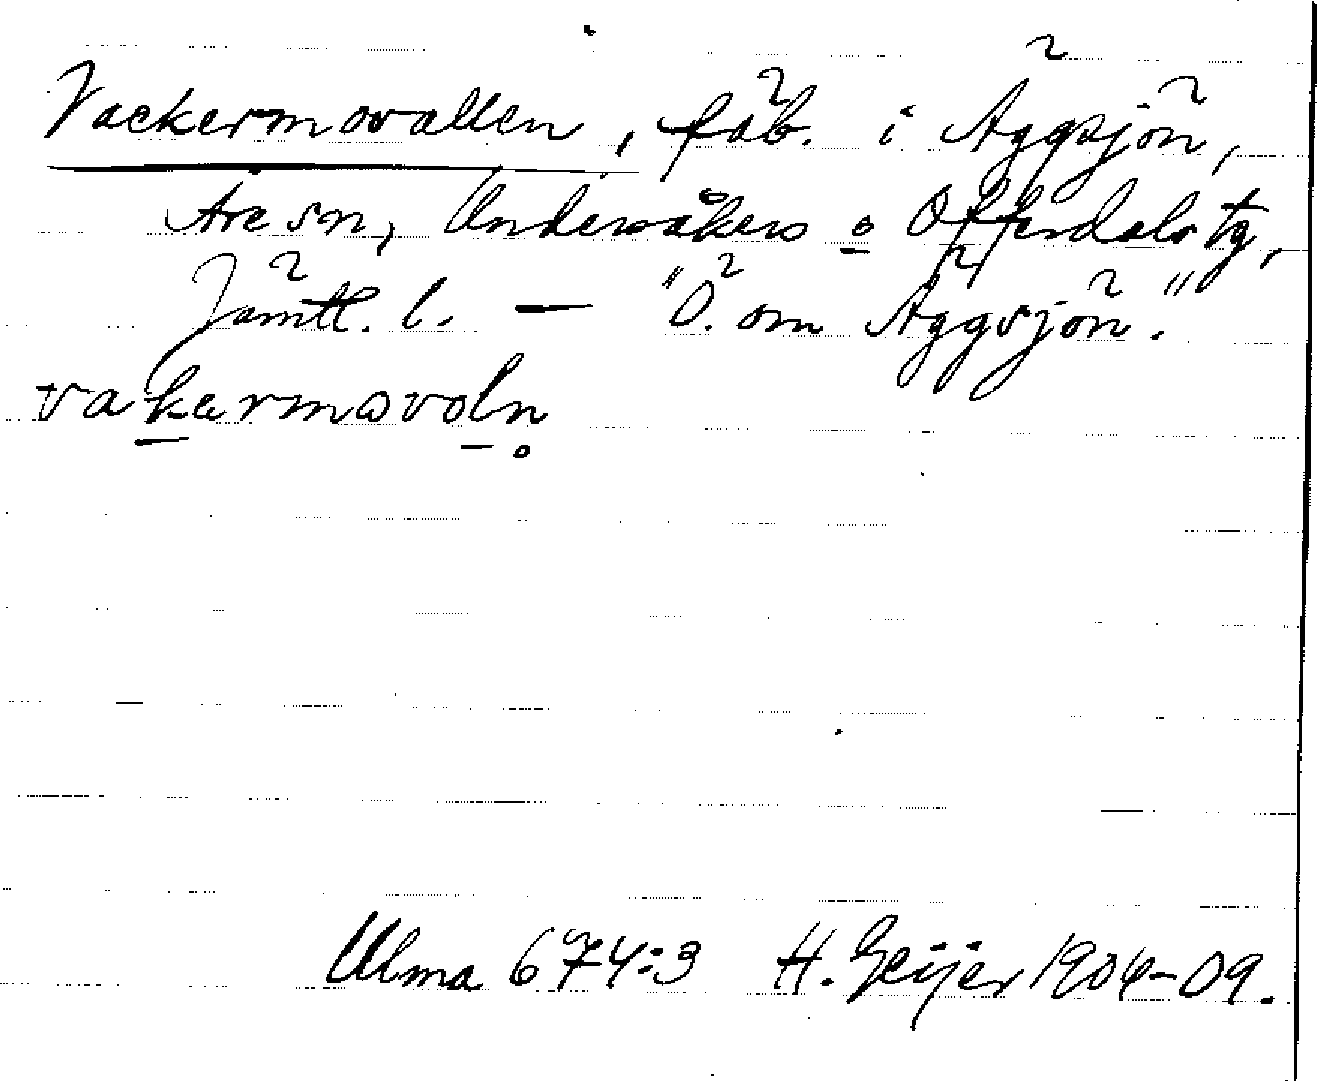 Vackermovallen, fäb. i Äggsjön,
Åre sn, Undersåkers o Offerdals tg,
Jämtl. l. — "Ö. om Äggsjön."
vakermovoln
Ulma 674:3 H. Geijer 1904-09.